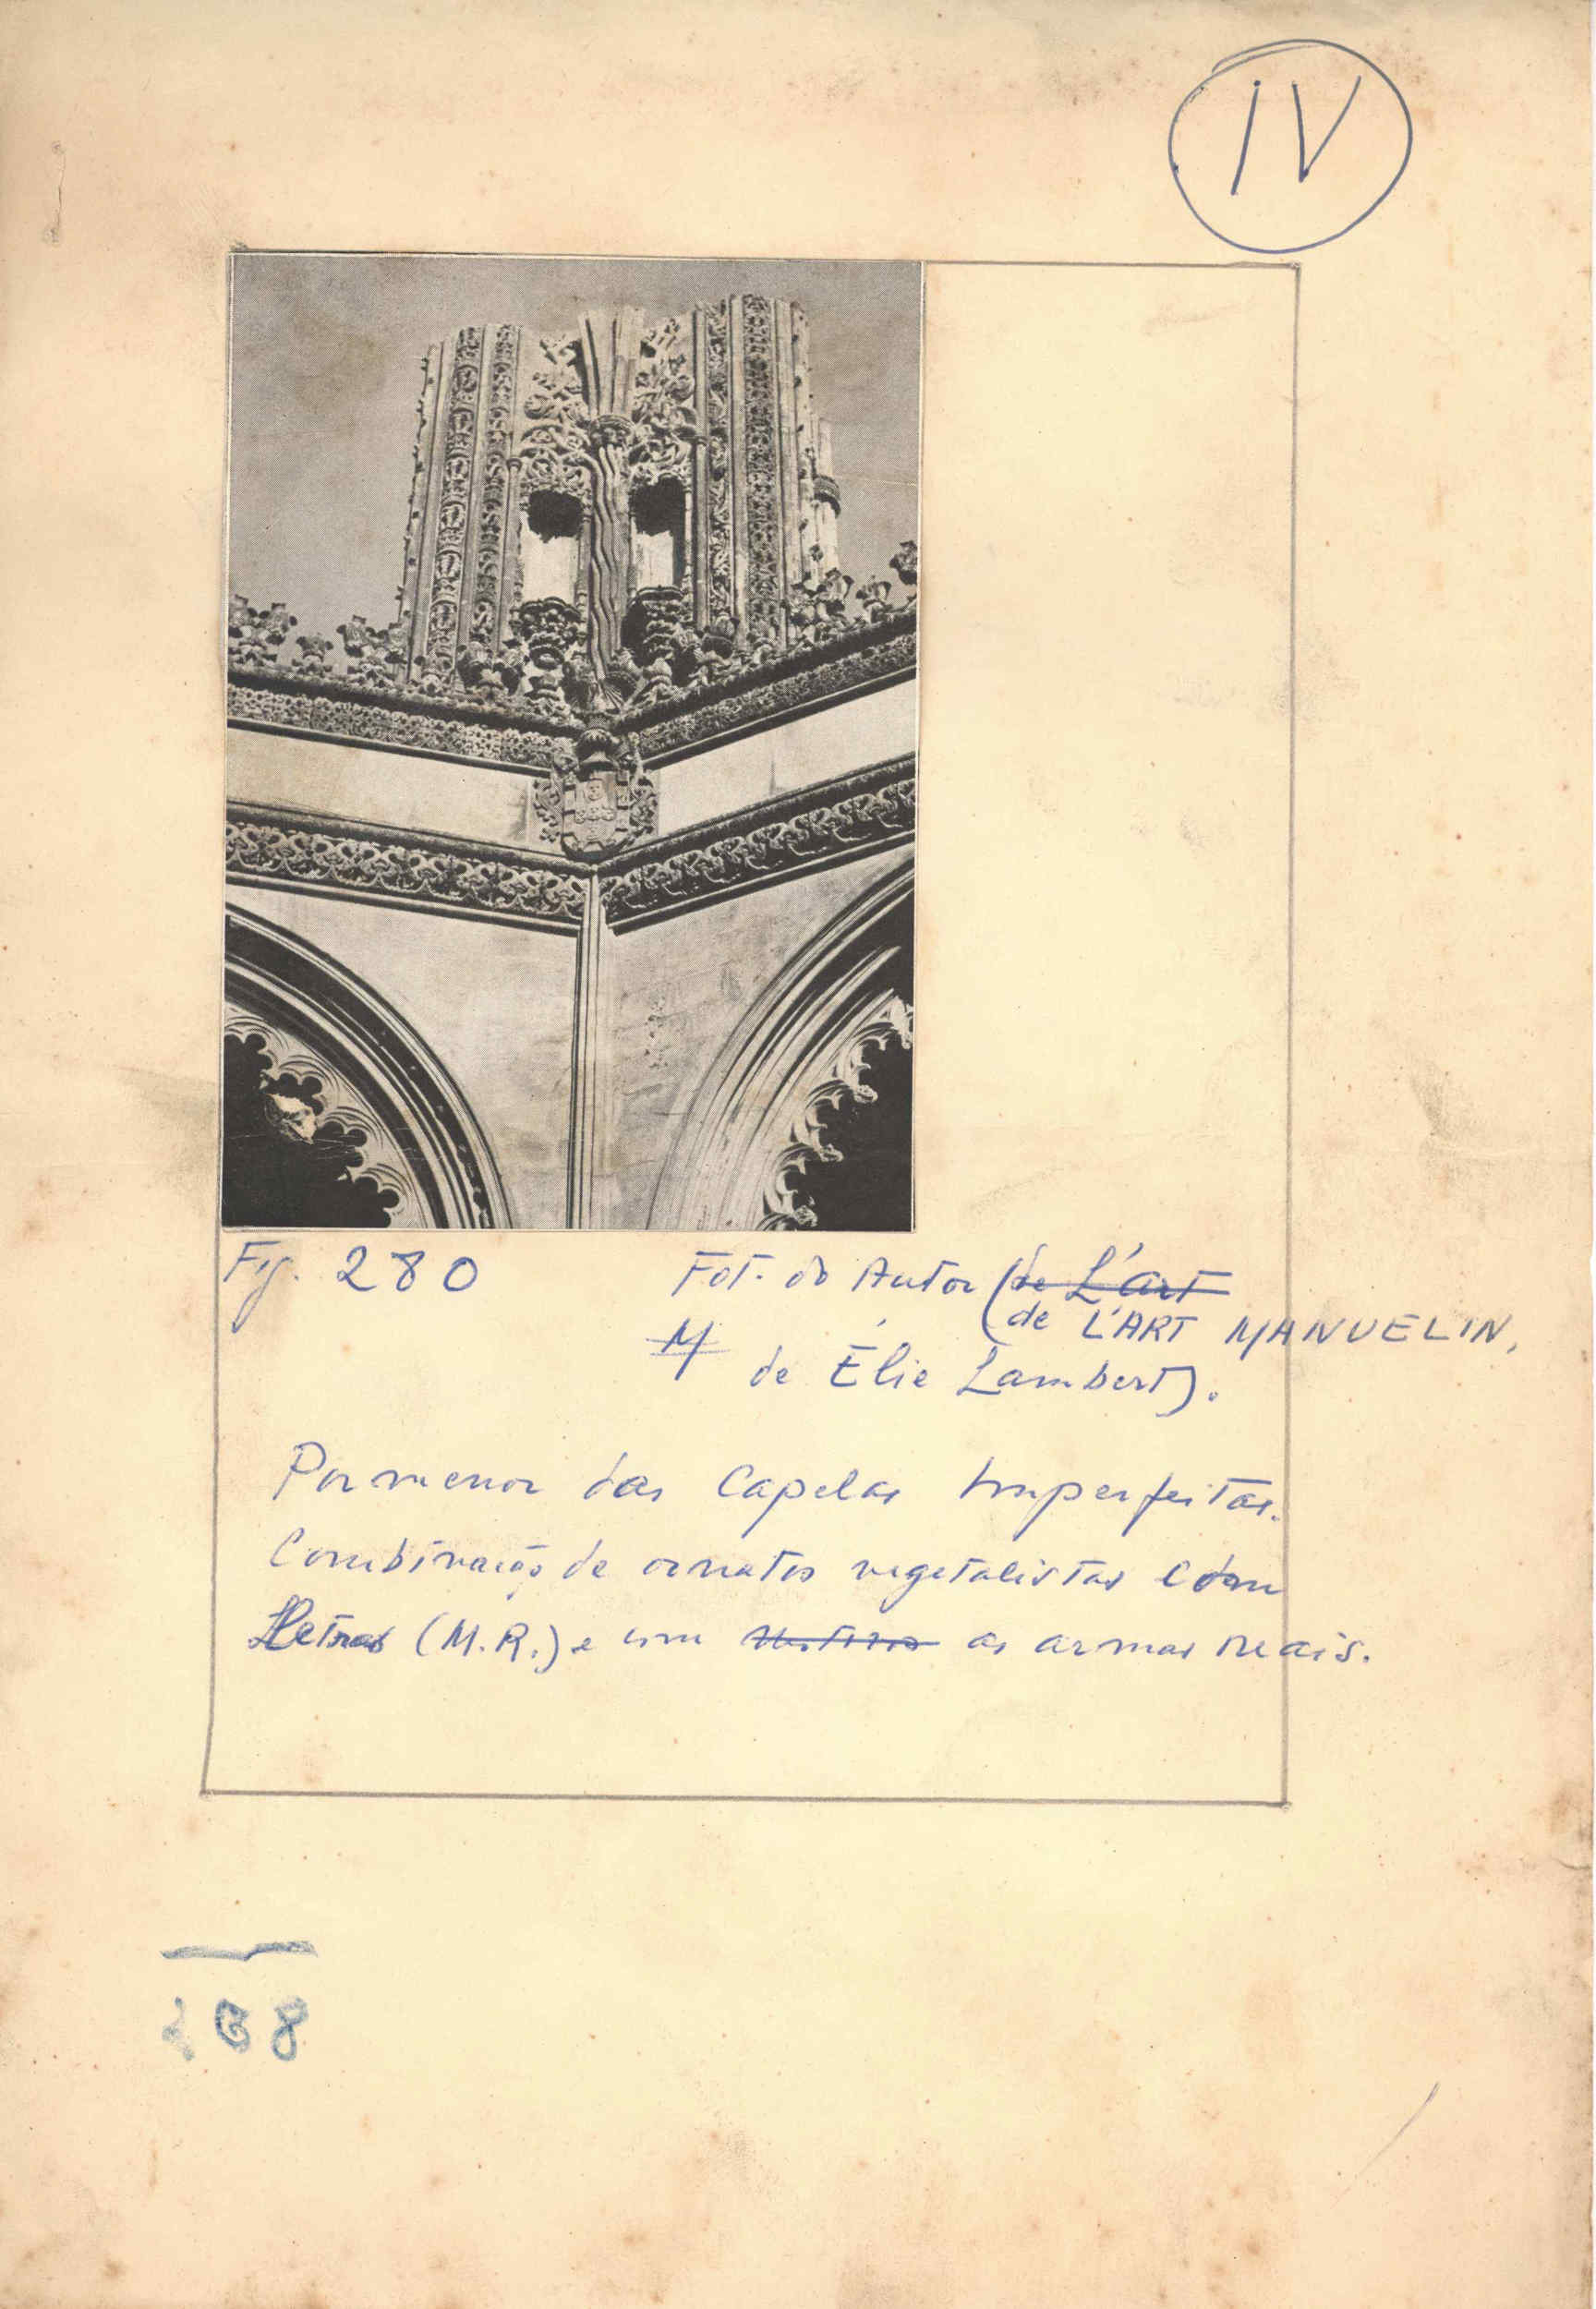 IV
Fig. 280
Fot. do Autor (de L'art
(de L'ART MANUELIN,
M
de Élie Lambert).
Pormenor das Capelas Imperfeitas.
Combinação de ornatos vegetalistas com
Letras (M.R.) e com as armas reais.
268